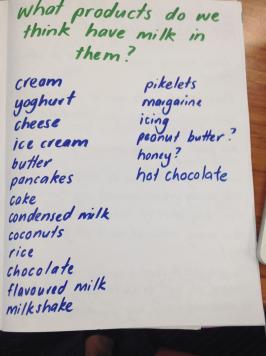 What products do we
think have milk in
them?
cream
yoghurt
cheese
ice cream
butter
pancakes
cake
condensed milk
coconuts
rice
chocolate
flavoured milk
milkshake
pikelets
margarine
icing
peanut butter?
honey?
hot chocolate